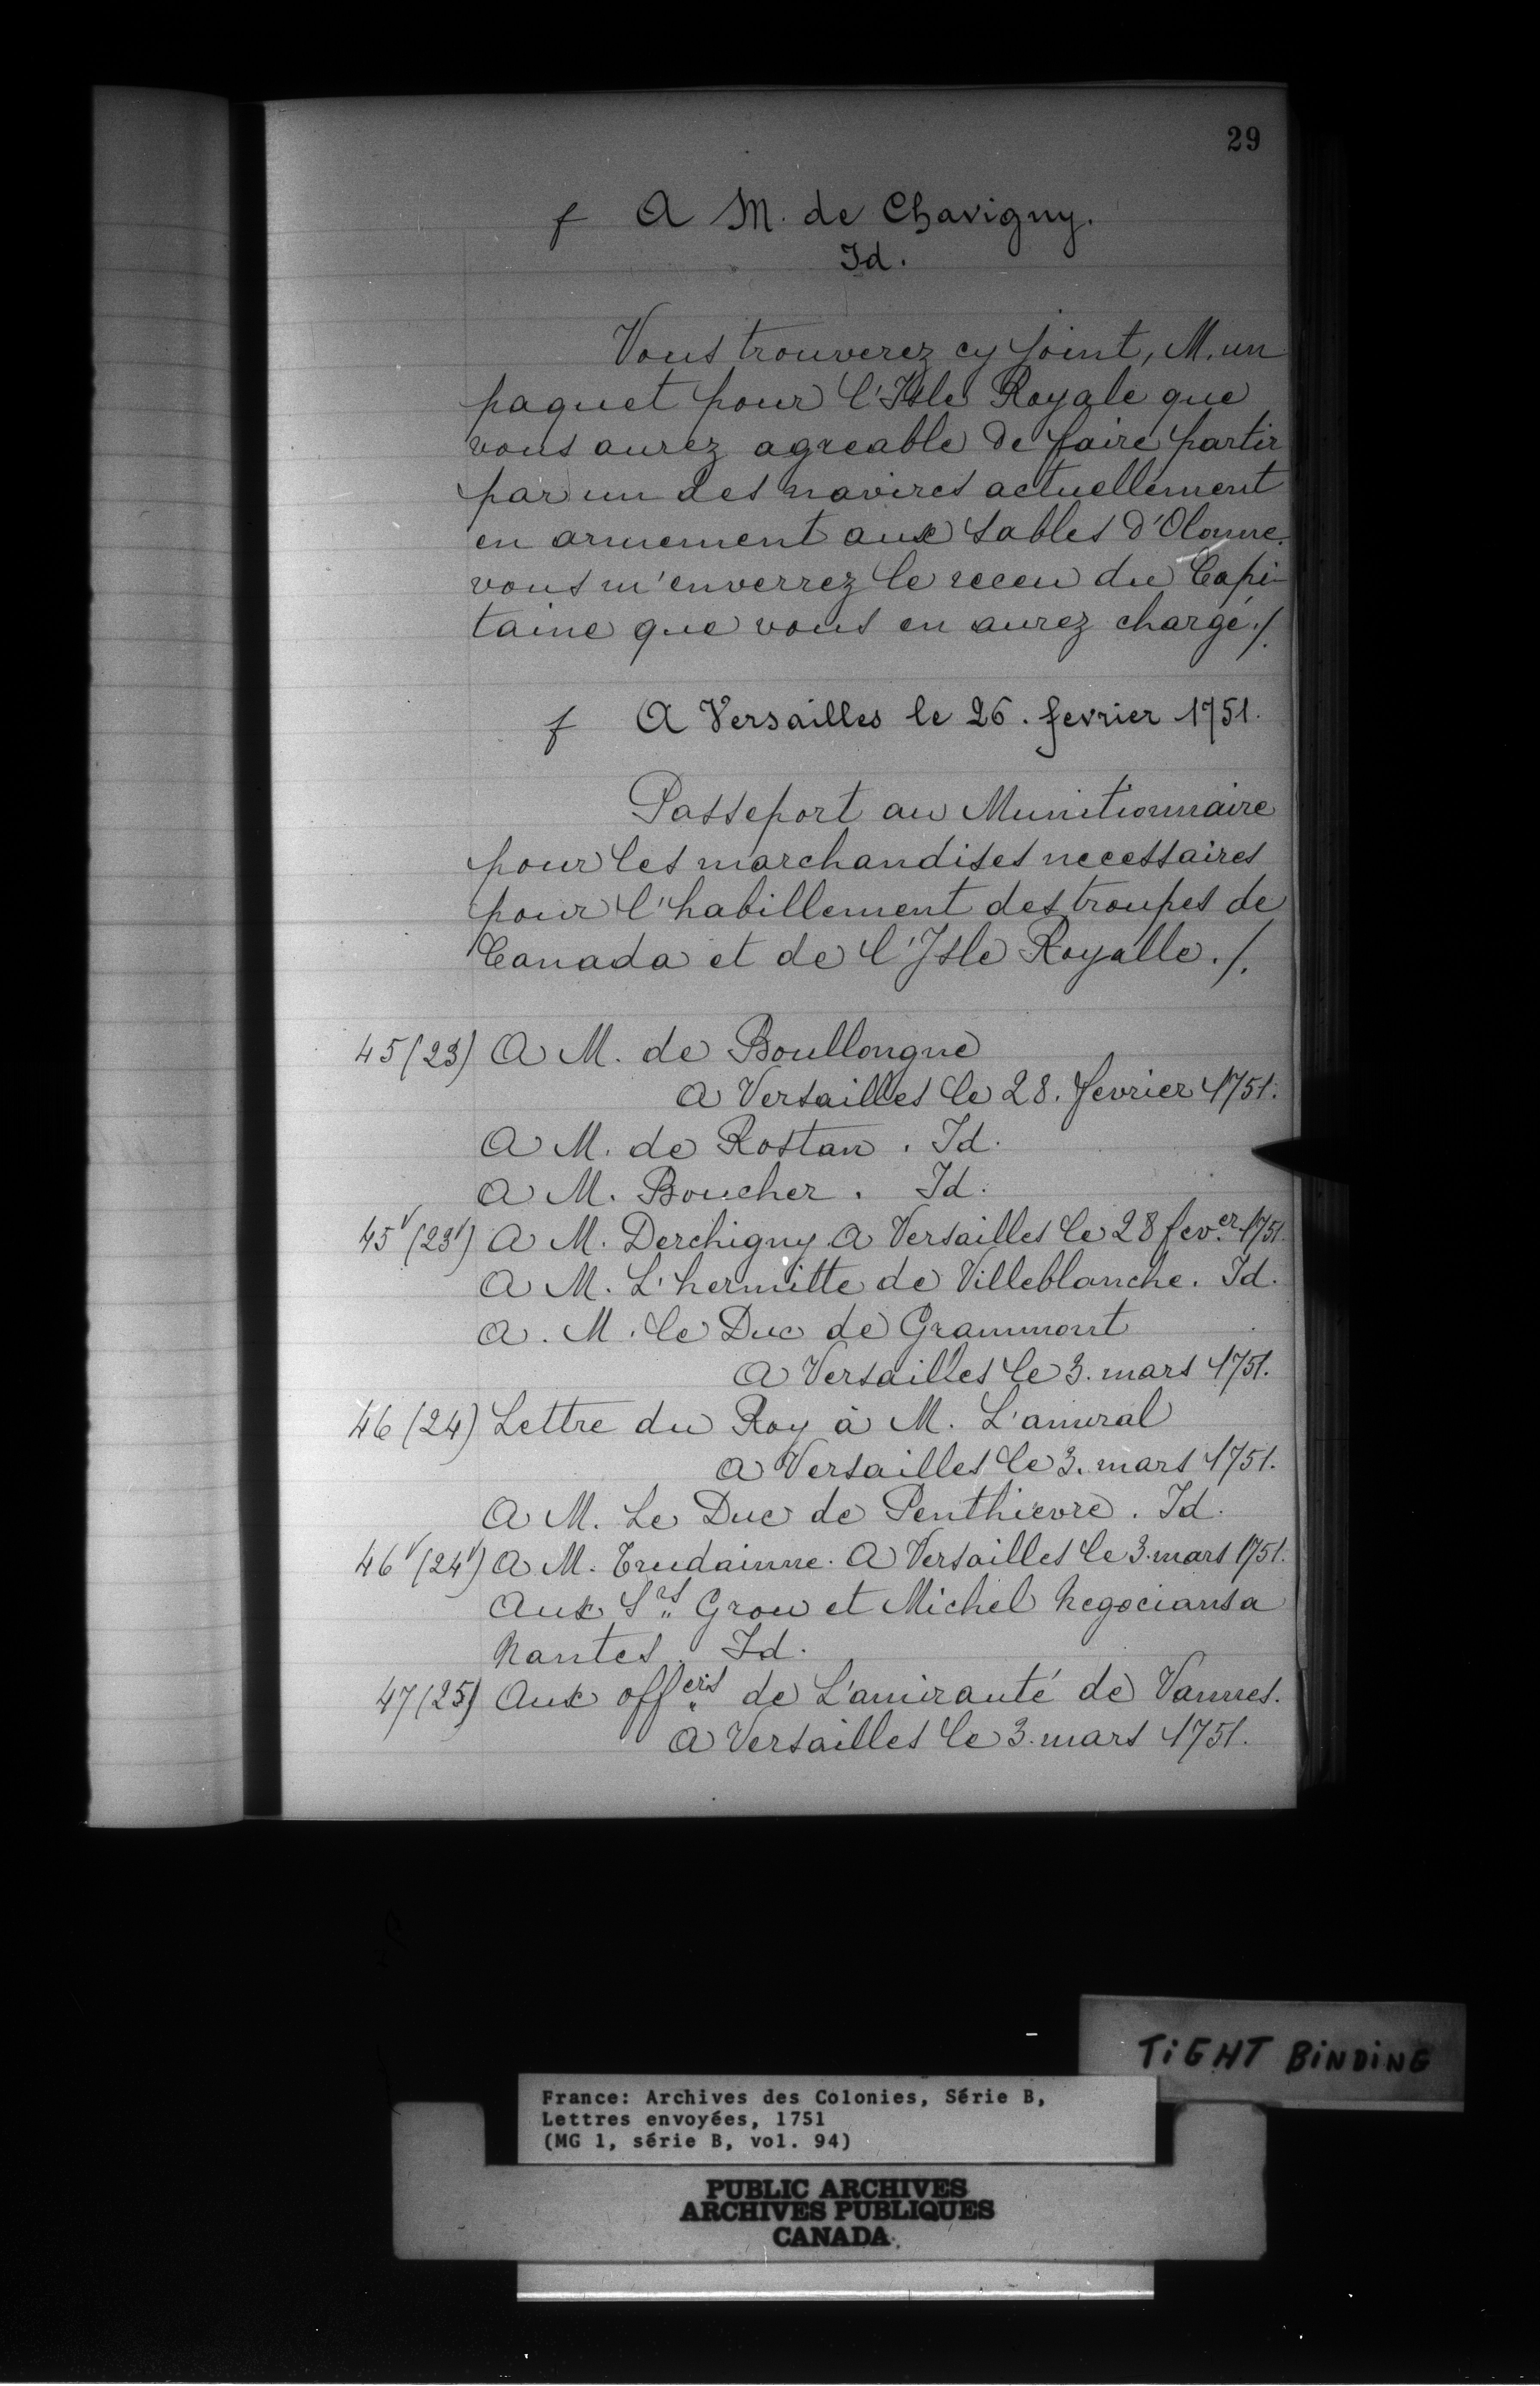 29
f A M. de Chavigny.
Id.
Vous trouverez cy joint, M. un
paquet pour l'Isle Royale que
vous aurez agreable de faire partir
par un des navires actuellement
en armement aux Sables d'Olonne.
vous m'enverrez le receu du Capi-
taine que vous en aurez chargé./.
f A Versailles le 26. fevrier 1751.
Passeport au Munitionnaire
pour les marchandises necessaires
pour l'habillement des troupes de
Canada et de l'Isle Royalle./.
45 (23) A M. de Boullongne
A Versailles le 28. fevrier 1751.
A M. de Rostan. Id.
A M. Boucher. Id.
45v (23v) A M. Derchigny A Versailles le 28 fev.er 1751.
A M. L'hermitte de Villeblanche. Id.
A. M. le Duc de Grammont
A Versailles le 3. mars 1751.
46 (24) Lettre du Roy à M. L'amiral
A Versailles le 3. mars 1751.
A M. Le Duc de Penthievre. Id.
46v (24v) A M. Trudainne. A Versailles le 3. mars 1751.
Aux Srs Grou et Michel Negocians a
Nantes. Id.
47 (25) Aux offers de L'amirauté de Vannes.
A Versailles le 3. mars 1751.
TIGHT BINDING
France: Archives des Colonies, Série B,
Lettres envoyées, 1751
(MG 1, série B, vol. 94)
PUBLIC ARCHIVES
ARCHIVES PUBLIQUES
CANADA